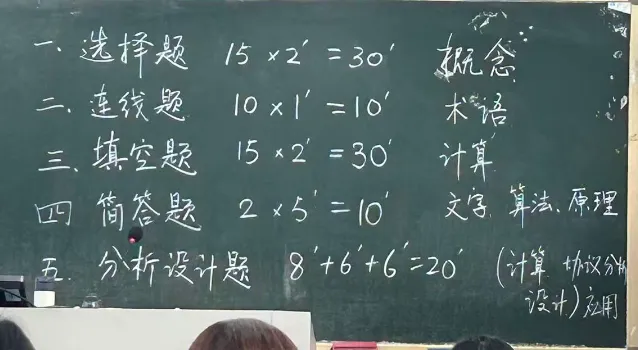 一、选择题 15×2′=30′ 概念
二、连线题 10×1′=10′ 术语
三、填空题 15×2′=30′ 计算
四 简答题 2×5′=10′ 文字、算法、原理
五、分析设计题 8′+6′+6′=20′ (计算 协议分析
设计)应用